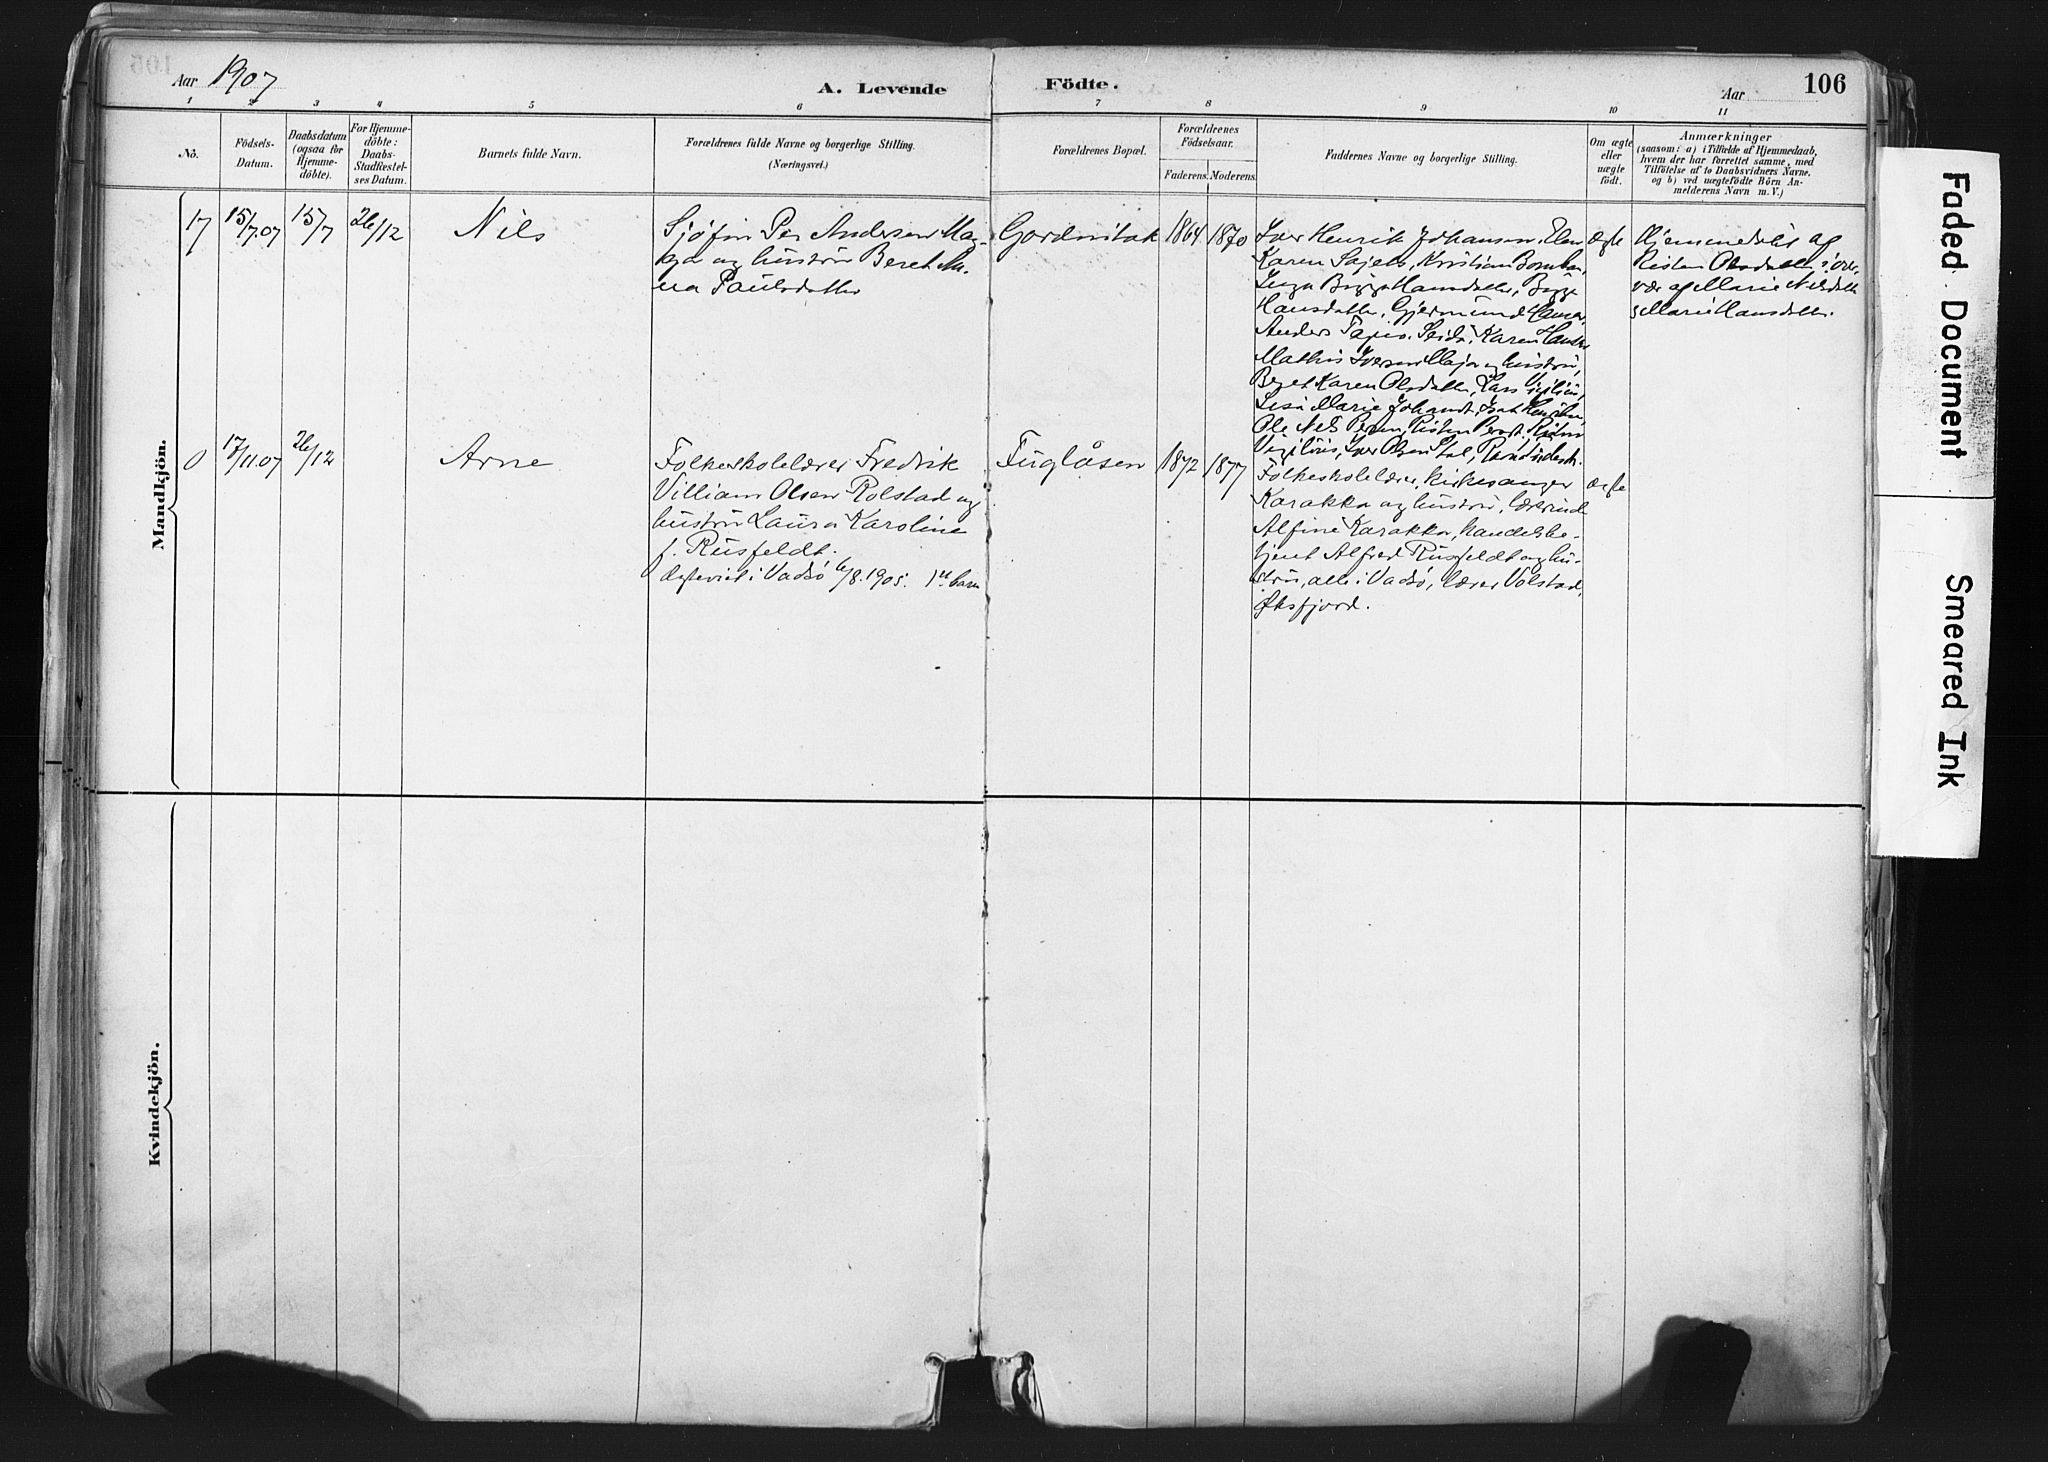 Aar 1907
A. Levende
Födte.
Aar
106
1 2 3 4 5 6 7 8 9 10 11
No.
Födsels-
Datum.
Daabsdatum
(ogsaa for
Hjemme-
döbte).
For Hjemme-
döbte:
Daabs-
Stadfæstel-
ses Datum.
Barnets fulde Navn.
Forældrenes fulde Navne og borgerlige Stilling.
(Næringsvei.)
Forældrenes Bopæl.
Forældrenes
Födselsaar.
Faderens. Moderens.
Faddernes Navne og borgerlige Stilling.
Om ægte
eller
uægte
födt.
Anmærkninger
(saasom: a) i Tilfælde af Hjemmedaab,
hvem der har forrettet samme, med
Tilföielse af to Daabsvidners Navne,
og b) ved uægtefödte Börn An-
melderens Navn m. V.)
Mandkjön.
17
15/7.07
15/7
26/12
Nils
Sjøfin Per Andersen
og hustru Beret An-
na Paulsdatter
1864
1870
Iver Henrik Johansen, Elen
Karen Kristian
Inga Hansdatter,
Hansdatter, Gjermund
Anders Karen
Mathis Iversen og hustru,
Beret Karen Olsdatter, Lars
Marie
Ole Nils Persen, Risten
Iver Olsen
ægte
Hjemmedøbt af
Risten Olsdatter i over-
vær af Marie Nilsdatter
Marie Hansdatter.
0
17/11.07
26/12
Arne
Folkeskolelærer Fredrik
Villiam Olsen Rolstad og
hustru Laura Karoline
f. Rusfeldt.
Ægteviet i Vadsø 6/8.1905. 1ste barn
Fuglåsen
1872
1877
Folkeskolelærer, kirkesanger
Karakka og hustru, lærerinde
Alfine Karakka, handelsbe-
tjent Alfred Rusfeldt og hu-
stru, alle i Vadsø, lærer Volstad,
Øksfjord.
ægte
Kvindekjön.
Faded Document
Smeared Ink